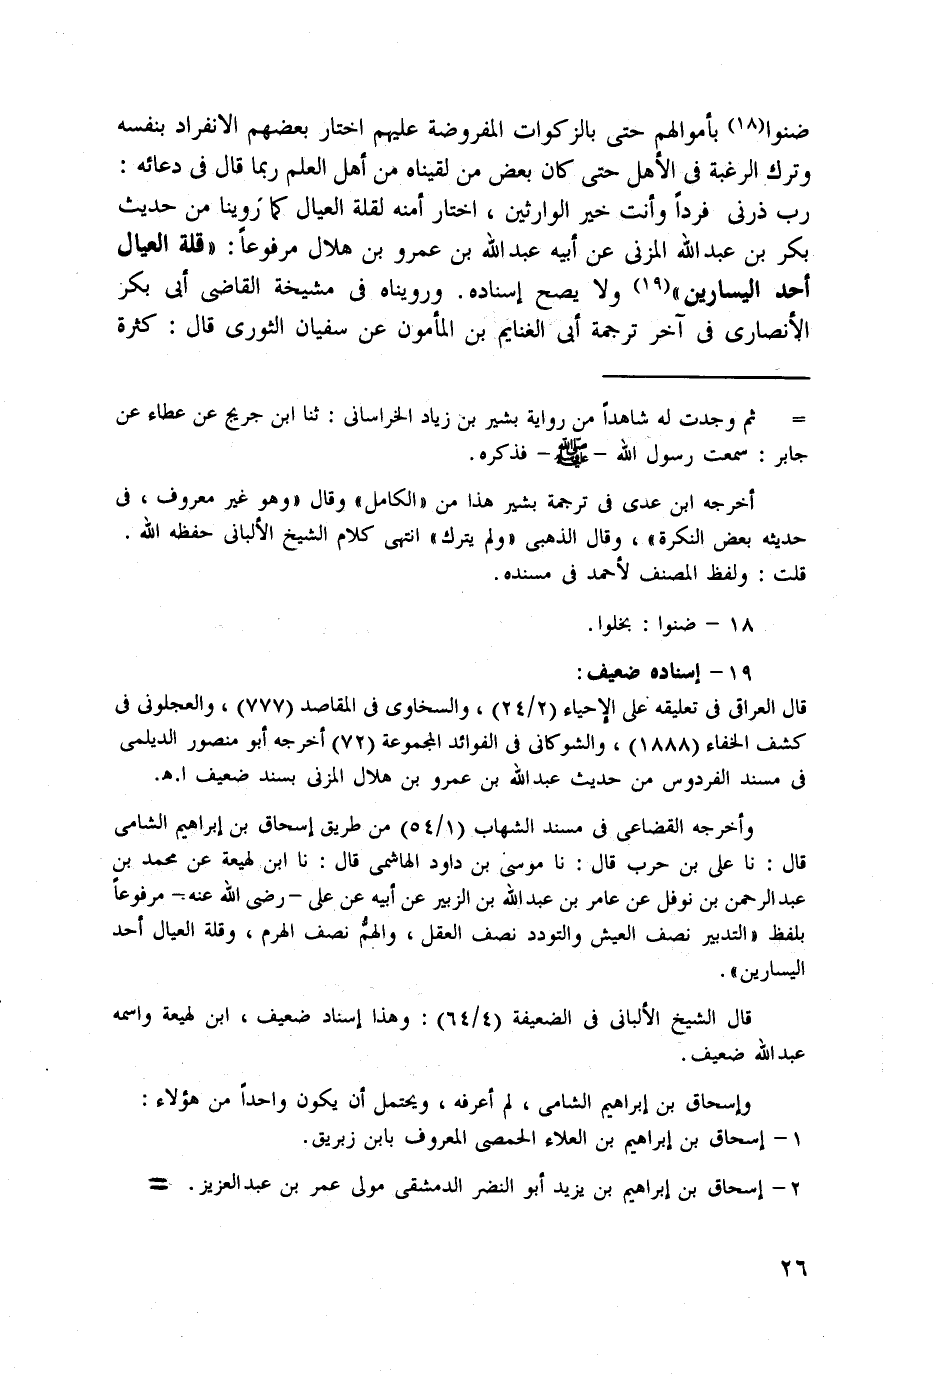 ضنوا(١٨) بأموالهم حتى بالزكوات المفروضة عليهم اختار بعضهم الانفراد بنفسه
وترك الرغبة فى الأهل حتى كان بعض من لقيناه من أهل العلم ربما قال فى دعائه :
رب ذرنى فرداً وأنت خير الوارثين ، اختار أمنه لقلة العيال كما رُوينا من حديث
بكر بن عبدالله المزنى عن أبيه عبدالله بن عمرو بن هلال مرفوعاً: «قلة العيال
أحد اليسارين»(١٩) ولا يصح إسناده. ورويناه فى مشيخة القاضى أبى بكر
الأنصارى فى آخر ترجمة أبى الغنايم بن المأمون عن سفيان الثورى قال : كثرة
= ثم وجدت له شاهداً من رواية بشير بن زياد الخراسانى : ثنا ابن جريج عن عطاء عن
جابر : سمعت رسول الله – ﷺ – فذكره.
أخرجه ابن عدى فى ترجمة بشير هذا من «الكامل» وقال «وهو غير معروف ، فى
حديثه بعض النكرة» ، وقال الذهبى «ولم يترك» انتهى كلام الشيخ الألبانى حفظه الله .
قلت : ولفظ المصنف لأحمد فى مسنده.
١٨ – ضنوا : بخلوا.
١٩ – إسناده ضعيف :
قال العراقى فى تعليقه على الإحياء (٢٤/٢) ، والسخاوى فى المقاصد (٧٧٧) ، والعجلونى فى
كشف الخفاء (١٨٨٨) ، والشوكانى فى الفوائد المجموعة (٧٢) أخرجه أبو منصور الديلمى
فى مسند الفردوس من حديث عبدالله بن عمرو بن هلال المزنى بسند ضعيف ا.هـ.
وأخرجه القضاعى فى مسند الشهاب (٥٤/١) من طريق إسحاق بن إبراهيم الشامى
قال : نا على بن حرب قال : نا موسى بن داود الهاشمى قال : نا ابن لهيعة عن محمد بن
عبدالرحمن بن نوفل عن عامر بن عبدالله بن الزبير عن أبيه عن على – رضى الله عنه – مرفوعاً
بلفظ «التدبير نصف العيش والتودد نصف العقل ، والهمُّ نصف الهرم ، وقلة العيال أحد
اليسارين» .
قال الشيخ الألبانى فى الضعيفة (٦٤/٤) : وهذا إسناد ضعيف ، ابن لهيعة واسمه
عبدالله ضعيف .
وإسحاق بن إبراهيم الشامى ، لم أعرفه ، ويحتمل أن يكون واحداً من هؤلاء :
١ – إسحاق بن إبراهيم بن العلاء الحمصى المعروف بابن زبريق.
٢ – إسحاق بن إبراهيم بن يزيد أبو النضر الدمشقى مولى عمر بن عبدالعزيز . =
٢٦